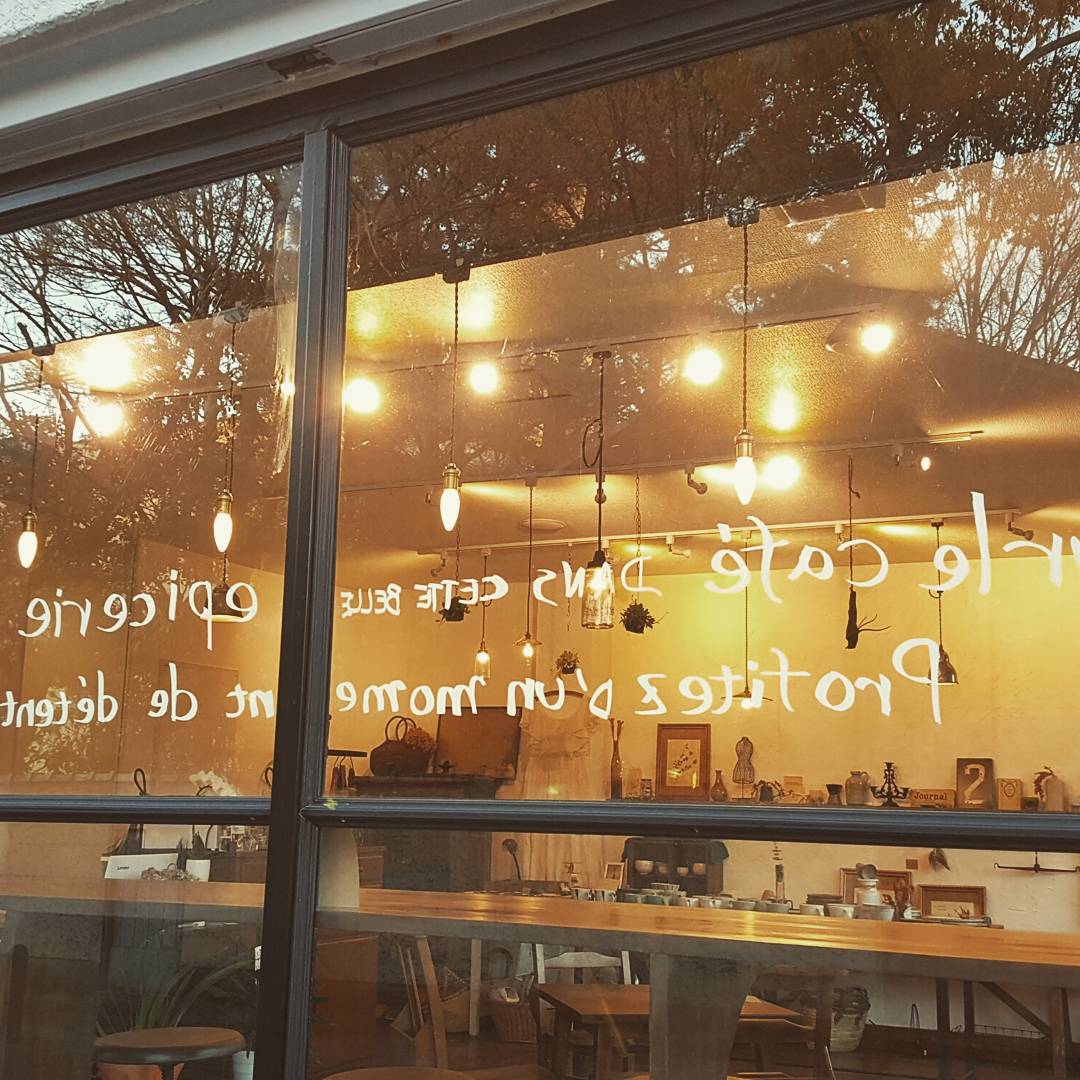 ur le café DANS CETTE BELLE epicerie
Profitez D'un moment de détent
2
Journal